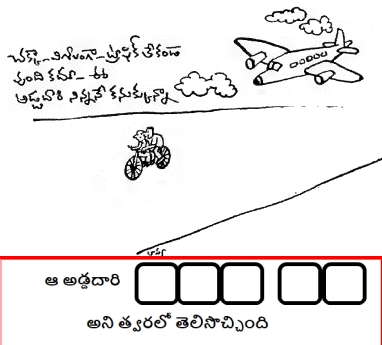 చక్కా- విశాలంగా- ట్రాఫిక్ లేకుండా
వుంది కదూ- ఈ
అడ్డదారి నిన్ననే కనుక్కున్నా
ఆ అడ్డదారి
అని త్వరలో తెలిసొచ్చింది